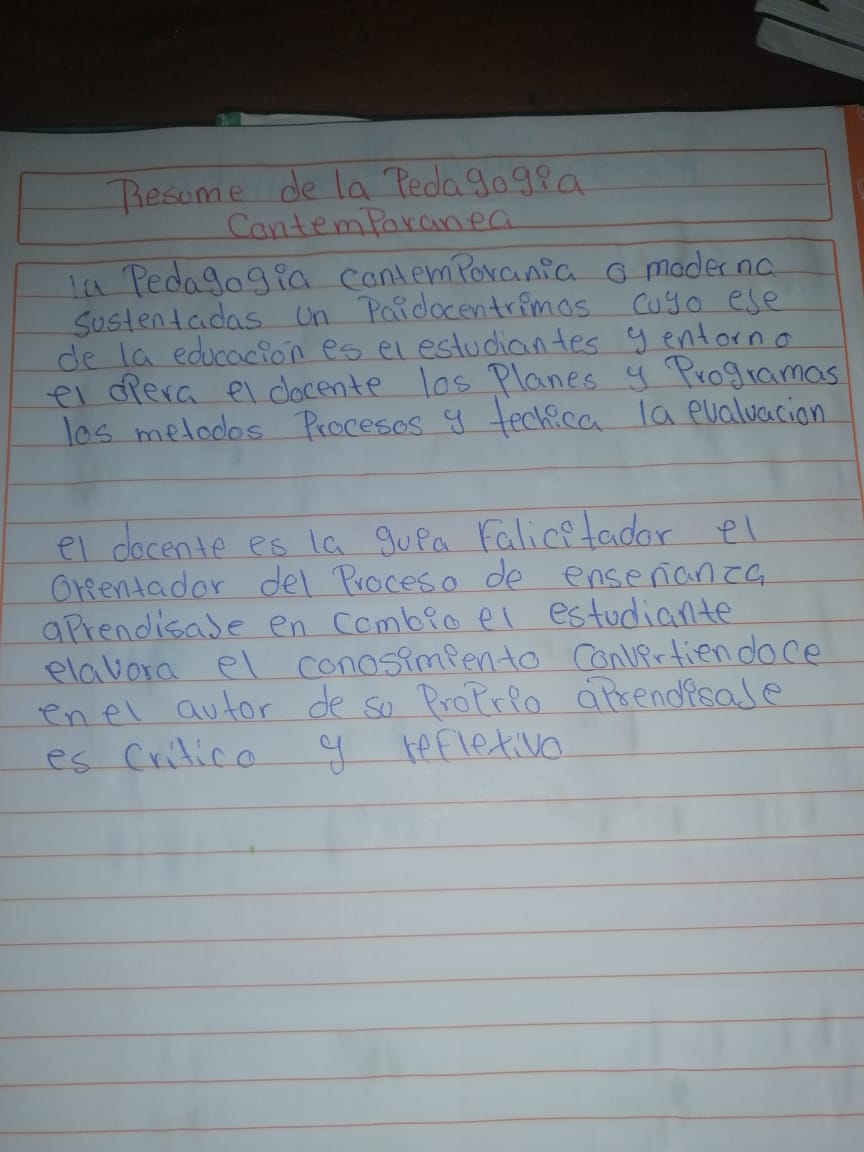 Resume de la Pedagogia
ContemPoranea
la Pedagogia contemPorania o moderna
sustentadas un Paidocentrimos cuyo ese
de la educación es el estudiantes y entorno
el opera el docente los Planes y Programas
los metodos Procesos y techica la evaluacion
el docente es la guia Falicitador el
Orientador del Proceso de enseñanza
aPrendisaje en cambio el estudiante
elavora el conosimiento Convirtiendoce
en el autor de su ProPrio aPrendisaje
es Critico y reflexivo